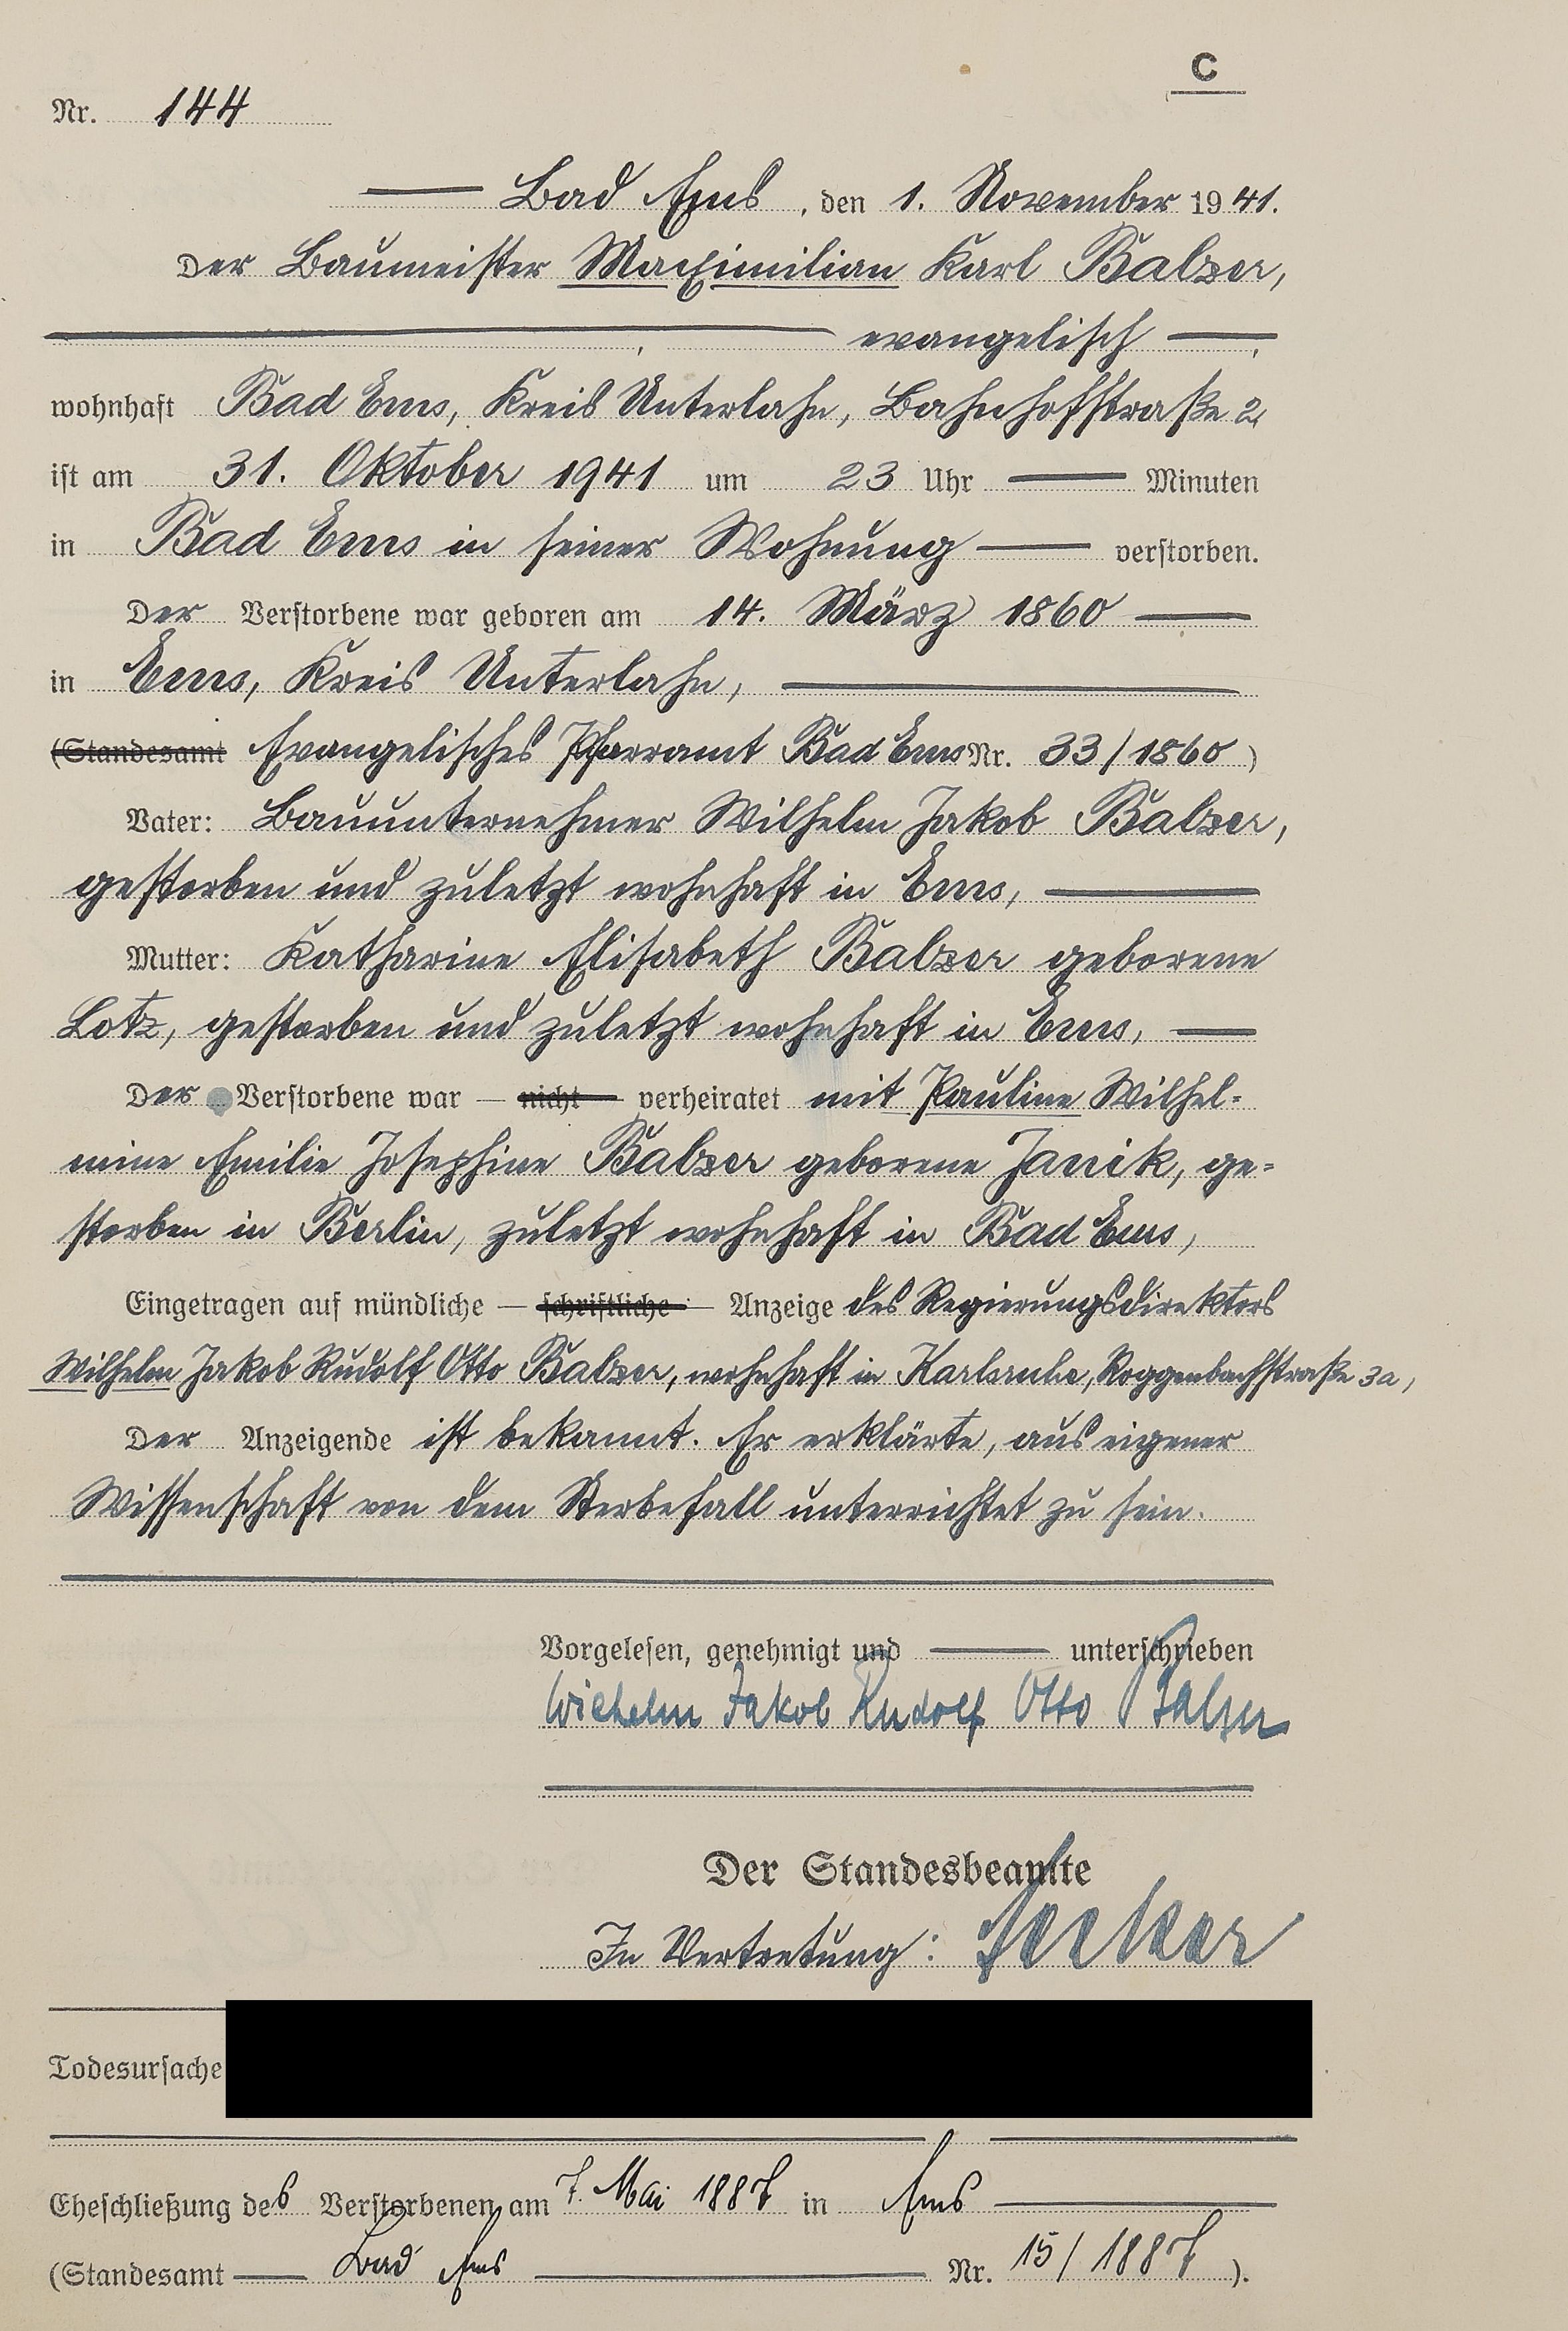 C
Nr. 144
Bad Ems, den 1. November 1941.
Der Baumeister Maximilian Karl Balzer,
evangelisch,
wohnhaft Bad Ems, Kreis Unterlahn, Bahnhofstraße 2,
ist am 31. Oktober 1941 um 23 Uhr Minuten
in Bad Ems in seiner Wohnung verstorben.
Der Verstorbene war geboren am 14. März 1860
in Ems, Kreis Unterlahn,
(Standesamt Evangelisches Pfarramt Bad Ems Nr. 33/1860)
Vater: Bauunternehmer Wilhelm Jakob Balzer,
gestorben und zuletzt wohnhaft in Ems,
Mutter: Katharine Elisabeth Balzer geborene
Lotz, gestorben und zuletzt wohnhaft in Ems,
Der Verstorbene war — nicht — verheiratet mit Pauline Wilhel-
mine Emilie Josephine Balzer geborene Janik, ge-
storben in Berlin, zuletzt wohnhaft in Bad Ems,
Eingetragen auf mündliche — schriftliche — Anzeige des Regierungsdirektors
Wilhelm Jakob Rudolf Otto Balzer, wohnhaft in Karlsruhe, Roggenbachstraße 3a,
Der Anzeigende ist bekannt. Er erklärte, aus eigener
Wissenschaft von dem Sterbefall unterrichtet zu sein.
Vorgelesen, genehmigt und unterschrieben
Wilhelm Jakob Rudolf Otto Balzer
Der Standesbeamte
In Vertretung:
Todesursache
Eheschließung des Verstorbenen am 7. Mai 1887 in Ems
(Standesamt Bad Ems Nr. 15/1887).